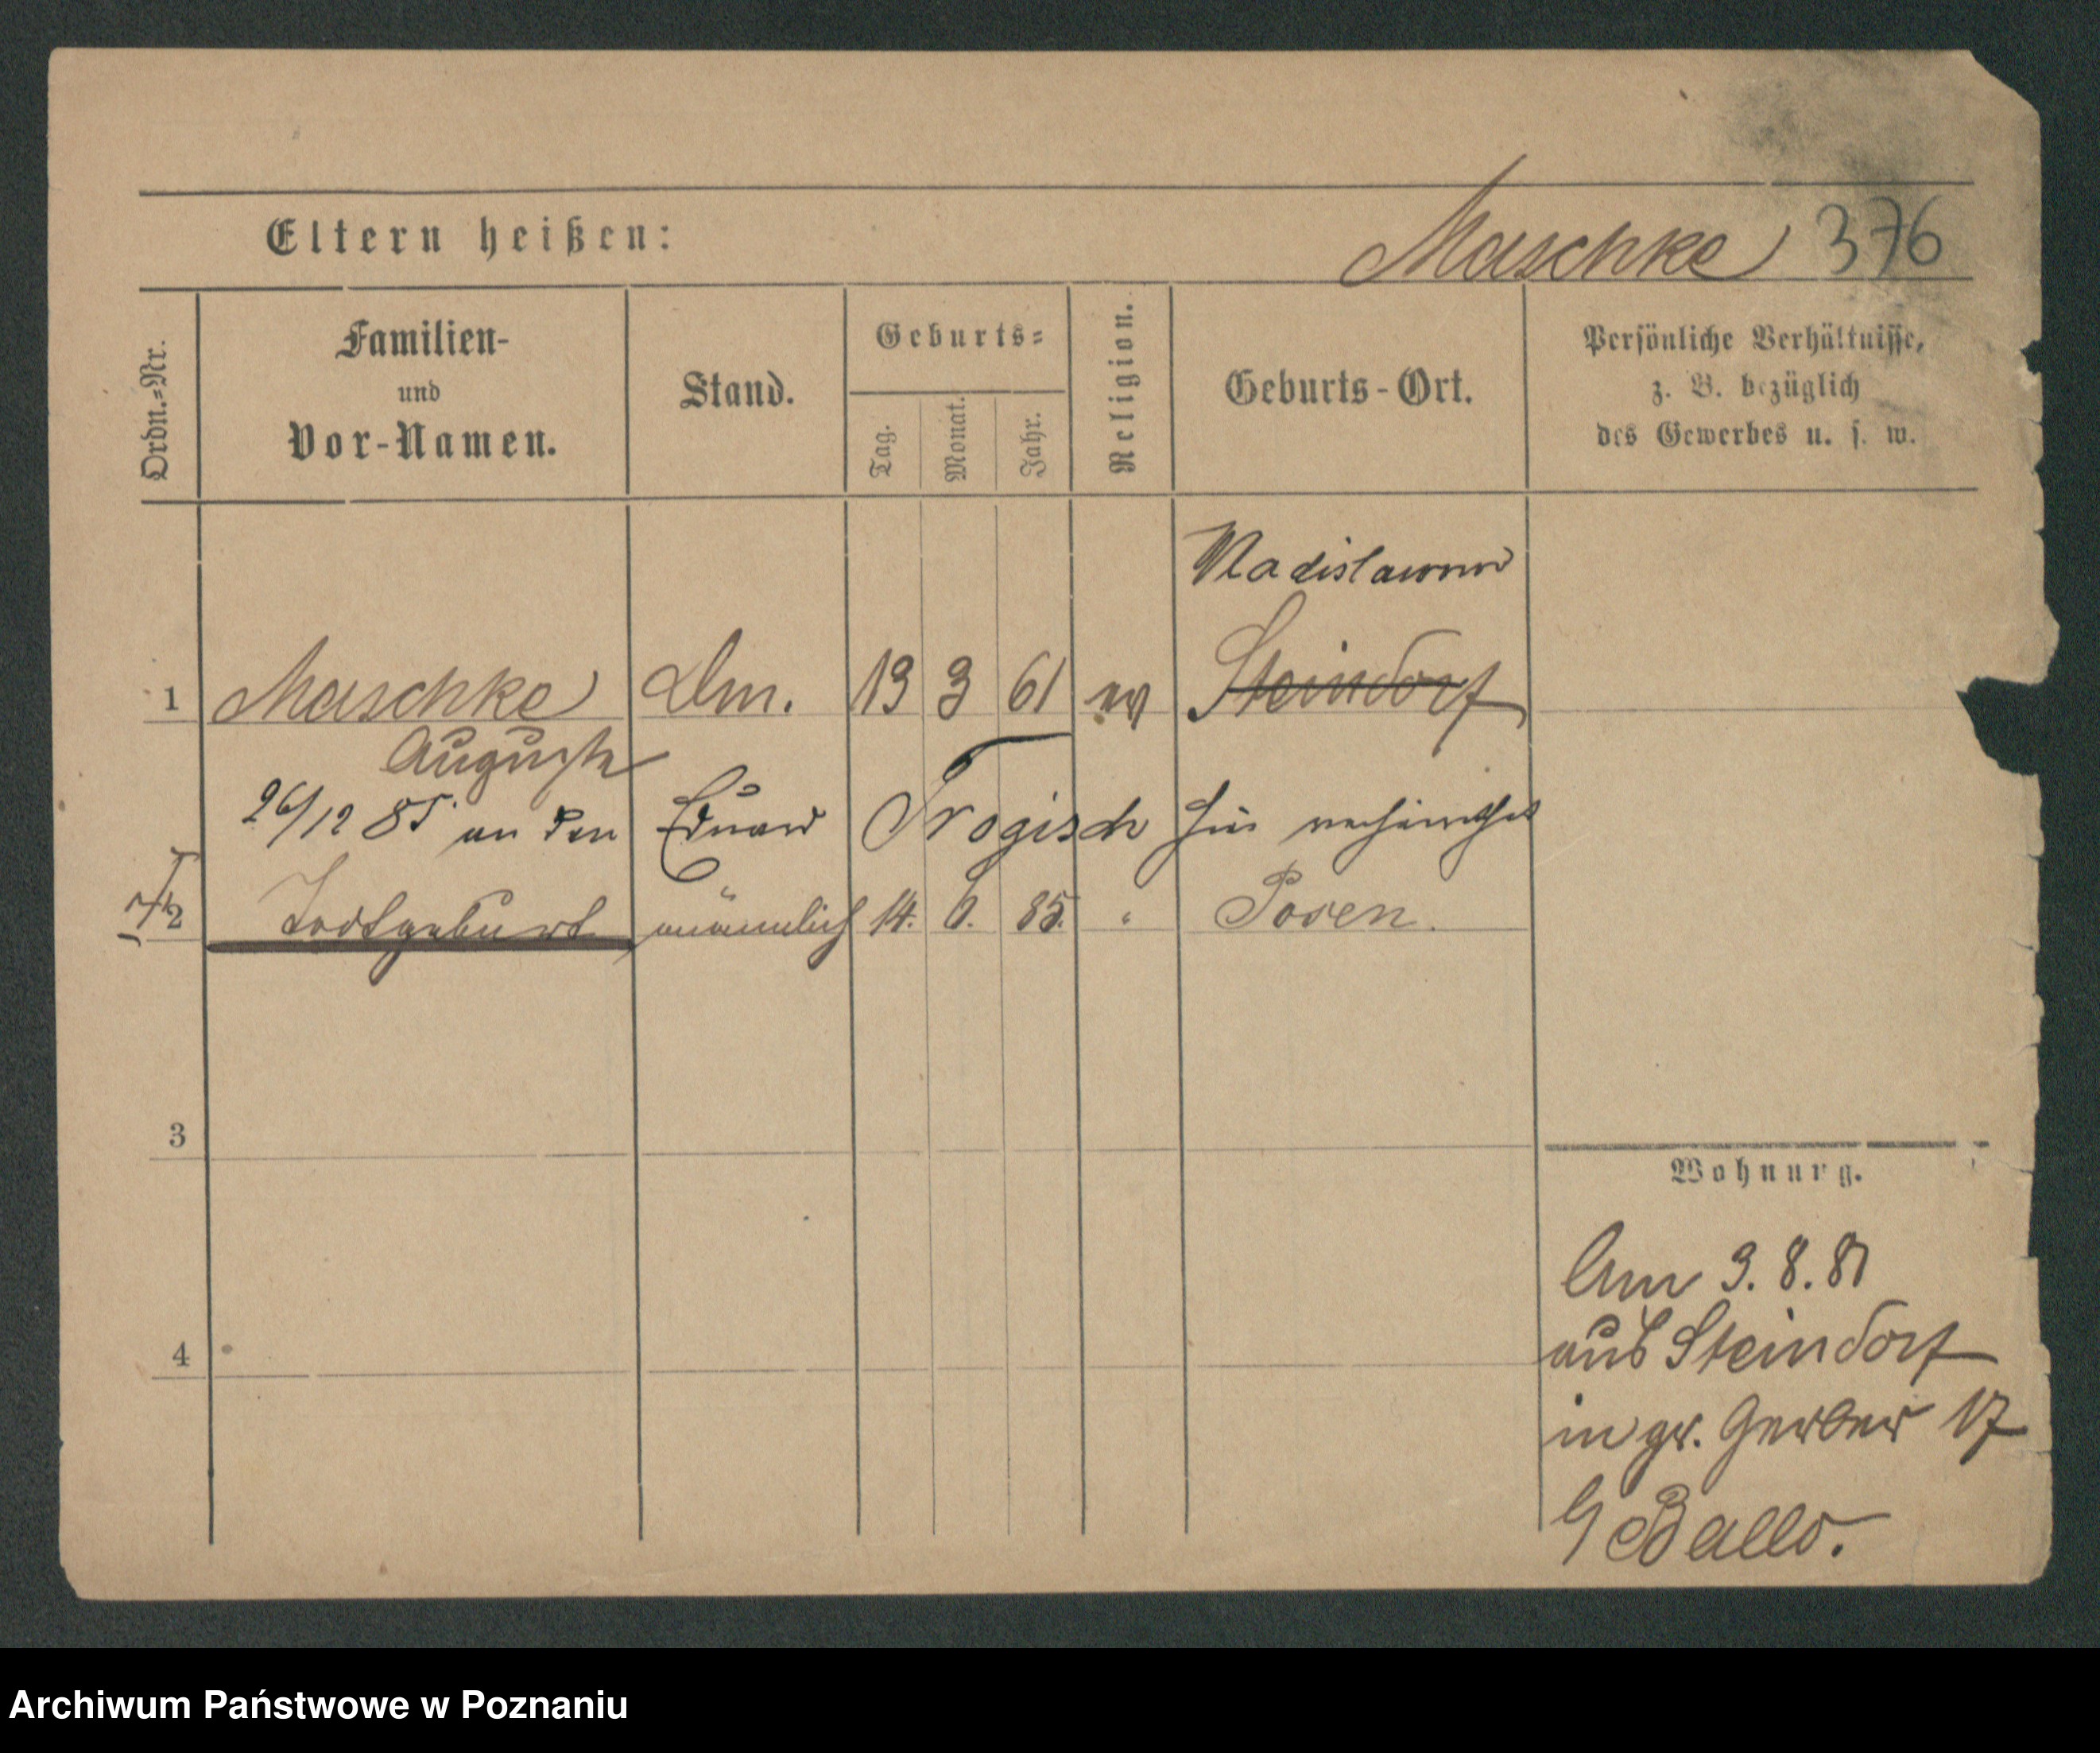 Eltern heißen:
Maschke 376
Ordn.=Nr.
Familien-
und
Vor-Namen.
Stand.
Geburts=
Tag.
Monat.
Jahr.
Religion.
Geburts-Ort.
Persönliche Verhältnisse,
z. B. bezüglich
des Gewerbes u. s. w.
1 Maschke Dm. 13 3 61 ev Steindorf
Auguste
26/12 85 an den Eduard Trogisch hier verheirathet
2 Todtgeburt männlich 14. 6. 85. " Posen.
3
Wohnung.
4
Am 3. 8. 81
aus Steindorf
in gr. Gerber 17
Ballo.
Archiwum Państwowe w Poznaniu